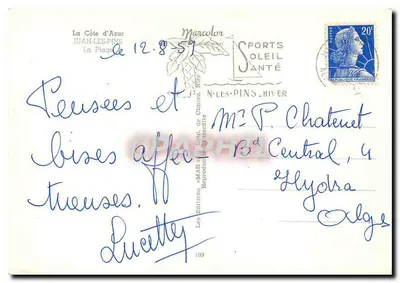 La Côte d'Azur
JUAN-LES-PINS
La Plage
Marcolor
le 12-8-59
SPORTS
SOLEIL
SANTÉ
N-LES-PINS-HIVER
20F
Pensées et
bises affec-
tueuses.
Lucette
Mr P. Chatenet
Bd Central, 4
Hydra
Alger
109